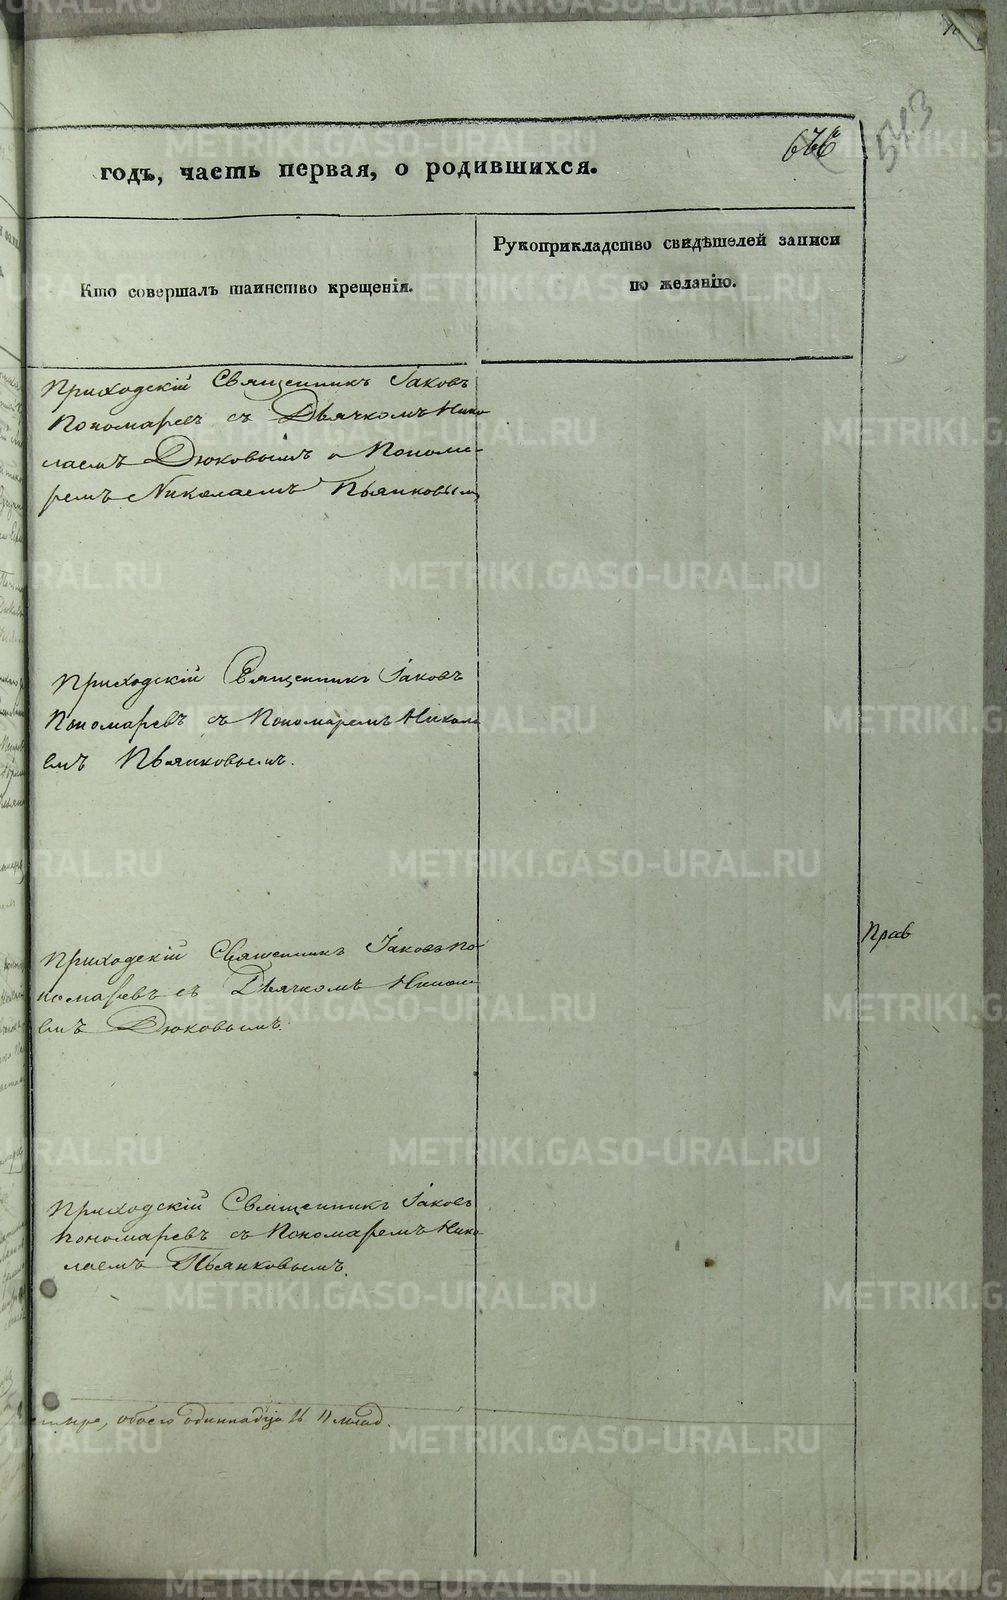 543
годъ, часть первая, о родившихся.
Кто совершалъ таинство крещенія.
Рукоприкладство свидѣтелей записи
по желанію.
Приходскій Священникъ Іаковъ
Пономаревъ съ Дьячкомъ Нико
лаемъ Дюковымъ и Понома-
ремъ Николаемъ Пьянковым
Приходскій Священникъ Іаковъ
Пономаревъ съ Пономаремъ Никола
емъ Пьянковымъ.
Приходскій Священникъ Іаковъ По-
номаревъ съ Дьячкомъ Никола
емъ Дюковымъ.
Прав
Приходскій Священникъ Іаковъ
Пономаревъ съ Пономаремъ Нико
лаемъ Пьянковымъ.
обоего одиннадца 11 млад.
METRIKI.GASO-URAL.RU